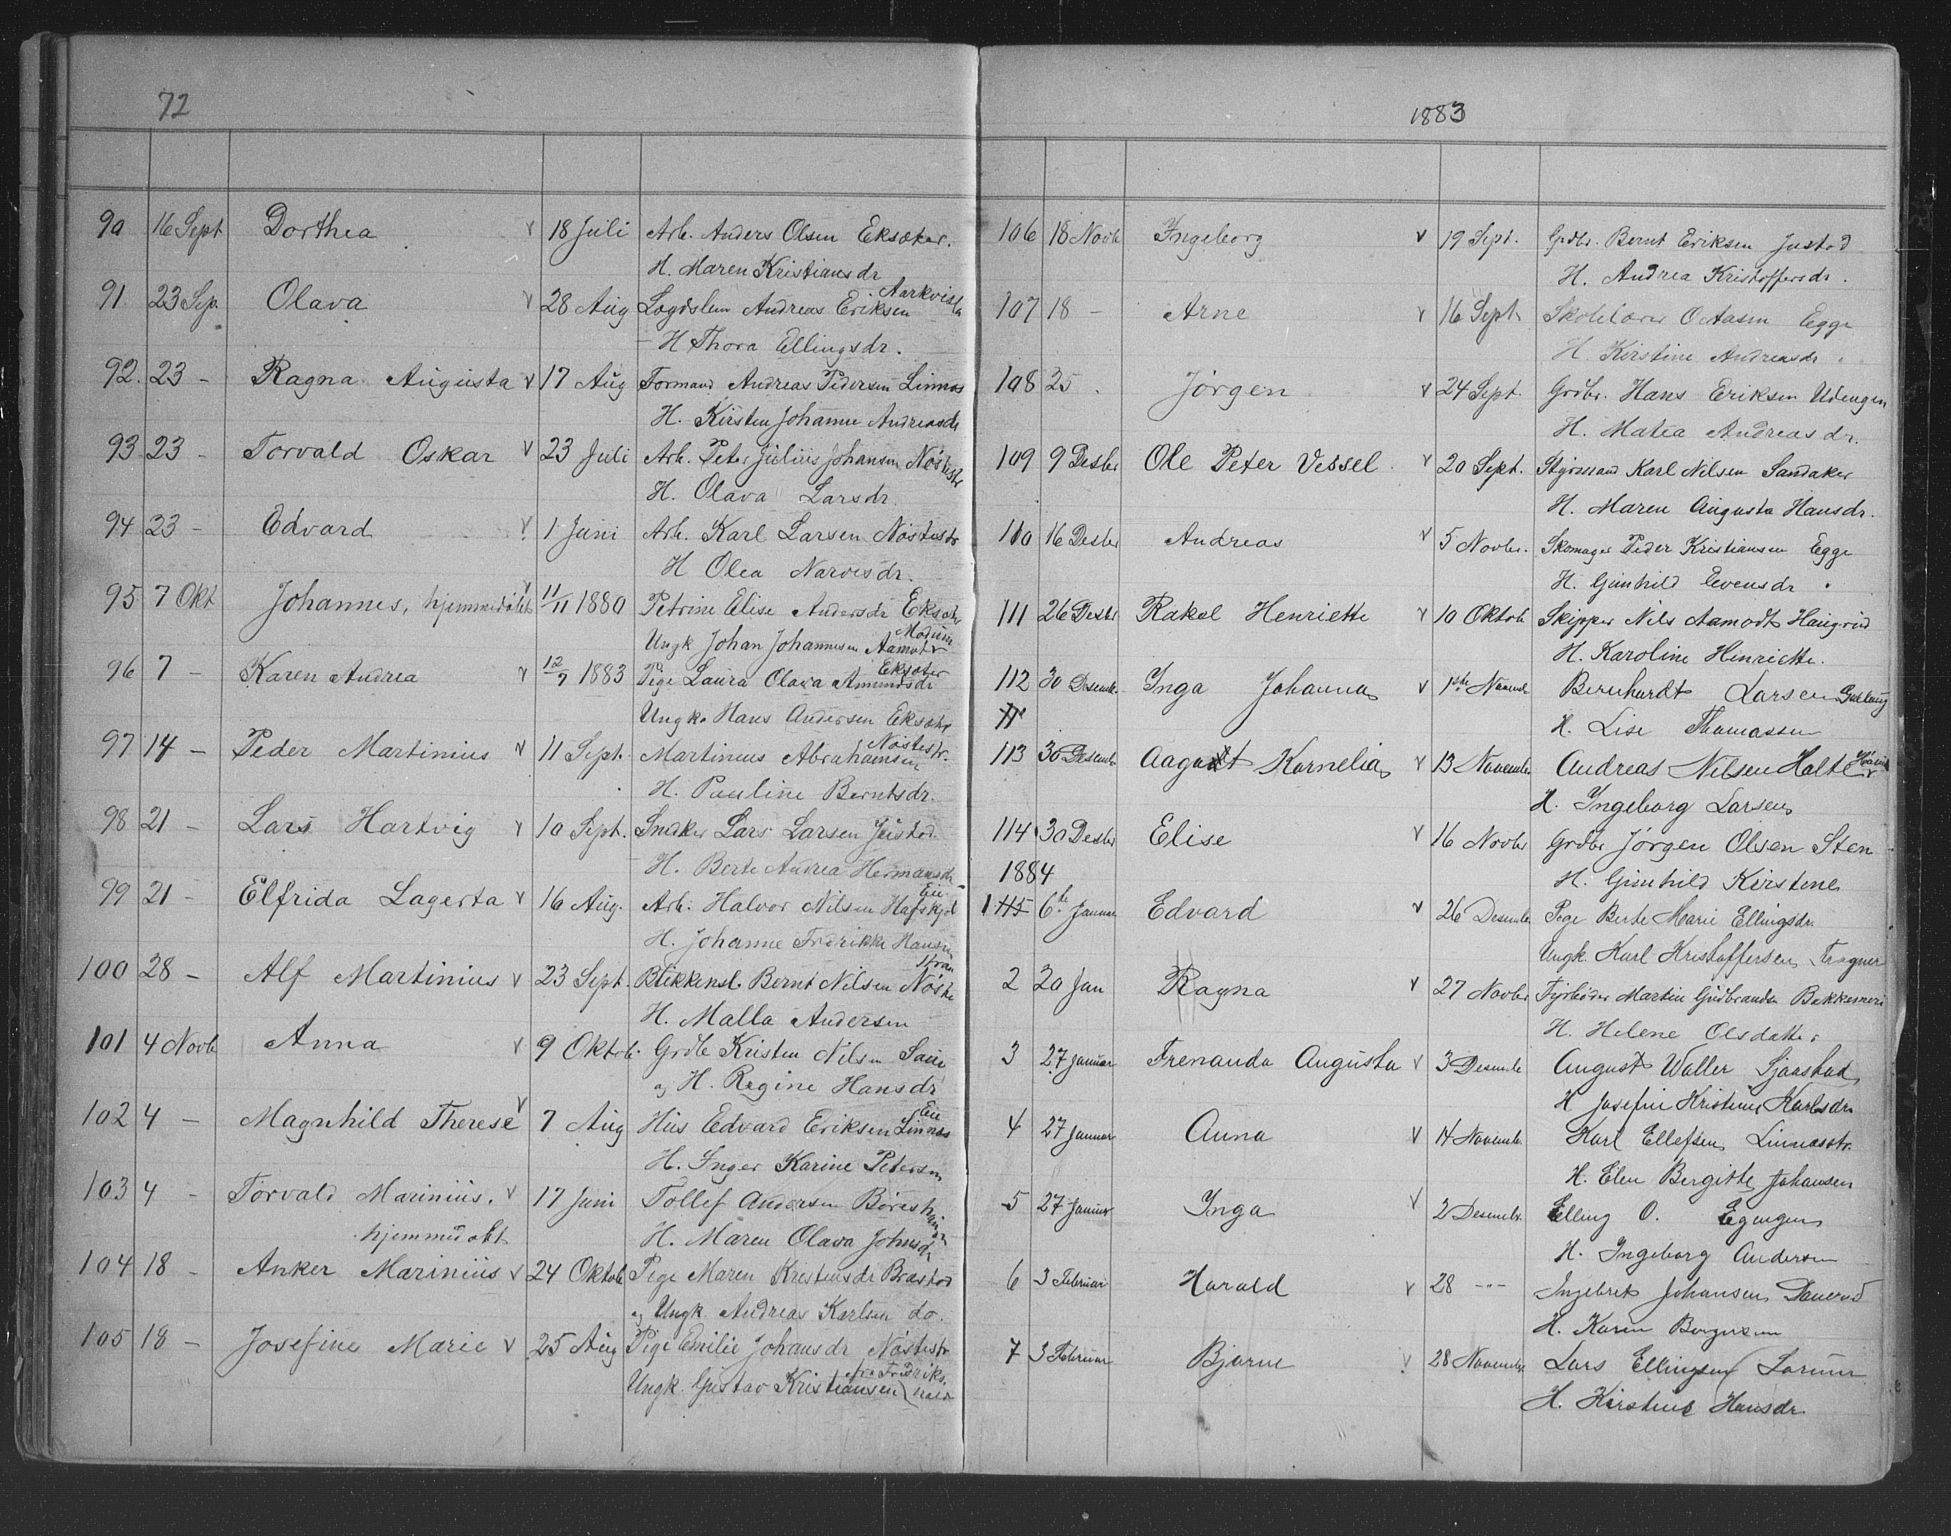 72
90 16 Sept Dorthea v 18 Juli Arb. Anders Olsen Eksæker.
H. Maren Kristiansdr
91. 23 Sep. Olava v 28 Aug Logdslem Andreas Eriksen Aarkvisla
H Thora Ellingsdr.
92. 23 - Ragna Augusta v 17 Aug Formand Andreas Pedersen Linnæs
H. Kirsten Johanne Andreasdr
93 23 - Torvald Oskar v 23 Juli Arb. Peter Julius Johansen Nöstestr
H. Olava Larsdr.
94 23 - Edvard v 1 Juni Arb. Karl Larsen Nöstestr
H Olea Narvesdr.
95 7 Okt Johannes, hjemmedöbt v 11/11 1880 Petrine Elise Andersdr Eksæker
Ungk Johan Johannesen Aamot Modum
96 7 - Karen Andrea v 12/7 1883 Pige Laura Olava Amundsdr Eksæker
Ungk. Hans Andersen Eksæker
97 14 - Peder Martinius v 11 Sept. Martinius Abrahamsen Nöstestr.
H. Pauline Berntsdr.
98 21 - Lars Hartvig v 10 Sept. Snedker Lars Larsen Justad
H. Berte Andrea Hermansdr
99 21 - Elfrida Lagerta v 16 Aug. Arb. Halvor Nilsen Hafskjol Eie
H. Johanne Fredrikke Hansen
100 28 - Alf Martinius v 23 Sept. Blikkensl. Bernt Nilsen Nöste
H. Malla Andersen
101 4 Novb Anna v 9 Oktob. Grdb Kristen Nilsen
og H. Regine Hansdr
102 4 - Magnhild Therese v 7 Aug Hus Edvard Eriksen Linnæs Eie
H. Inger Karine Petersen
103 4 - Torvald Marinius. v 17 Juni Tollef Andersen
hjemmedøbt H. Maren Olava Johnsdr
104 18 - Anker Marinius v 24 Oktob Pige Maren Kristensdr
og Ungk. Andreas Karlsen do.
105 18 - Josefine Marie v 25 Aug Pige Emilie Johansdr Nöstestr
Ungk. Gustav Kristiansen fra Fredrikshald
1883
106 18 Novb Ingeborg v 19 Sept. Grdbr. Bernt Eriksen Justad
H. Andrea Kristoffersdr.
107 18 - Arne v 16 Sept Skolelærer Egge
H. Kirstine Andreasdr.
108 25 . Jörgen v 24 Sept. Grdbr. Hans Eriksen Udengen
H. Matea Andreasdr.
109 9 Desbr Ole Peter Vessel. v 20 Sept. Styrmand Karl Nilsen Sandaker
H. Maren Augusta Hansdr.
110 16 Desbr Andreas v 5 Novbr. Skomager Peder Kristiansen Egge
H. Gunhild Evensdr.
111 26 Desbr Rakel Henriette v 10 Oktob Skipper Nils Aamodt Haugrud
H. Karoline Henriette.
112 30 Desemb. Inga Johanna v 1ste Novemb Bernhardt Larsen Gullaug
H. Lise Thomassen
113 30 Desemb Aagot Kornelia v 13 November Andreas Nilsen Holte
H. Ingeborg Larsen
114 30 Desbr Elise v 16 Novbr Grdbr Jörgen Olsen Sten
1884 H. Gunhild Kirstine
1 115 6te Januar Edvard v 26 Desember Pige Berte Marie Ellingsdr.
Ungk. Karl Kristoffersen Fragner
2 20 Jan Ragna v 27 Novbr Fyrböder Martin Gudbrandsen
H. Helene Olsdatter
3 27 Januar Frenanda Augusta v 3 Desemb August Waller Sjaastad
H Josefine Kristine Karlsdr
4 27 Januar Anna v 14 Novemb Karl Ellefsen Linnæsstr.
H. Elen Bergitte Johansen
5 27 Januar Inga v 2 Desembr. Elling O. Egengen
H. Ingeborg Andersen
6 3 Februar Harald v 28 -"- Ingebret Johansen
H. Karen Borgersen
7 3 Februar Bjarne v 28 November Lars Ellingsen
H. Kirstine Hansdr